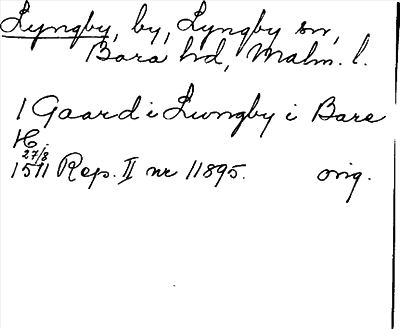 Lyngby, by, Lyngby sn,
Bara hd, Malm. l.
1 Gaard i Liungby i Bare
H.
27/8
1511 Rep. II nr 11895. orig.